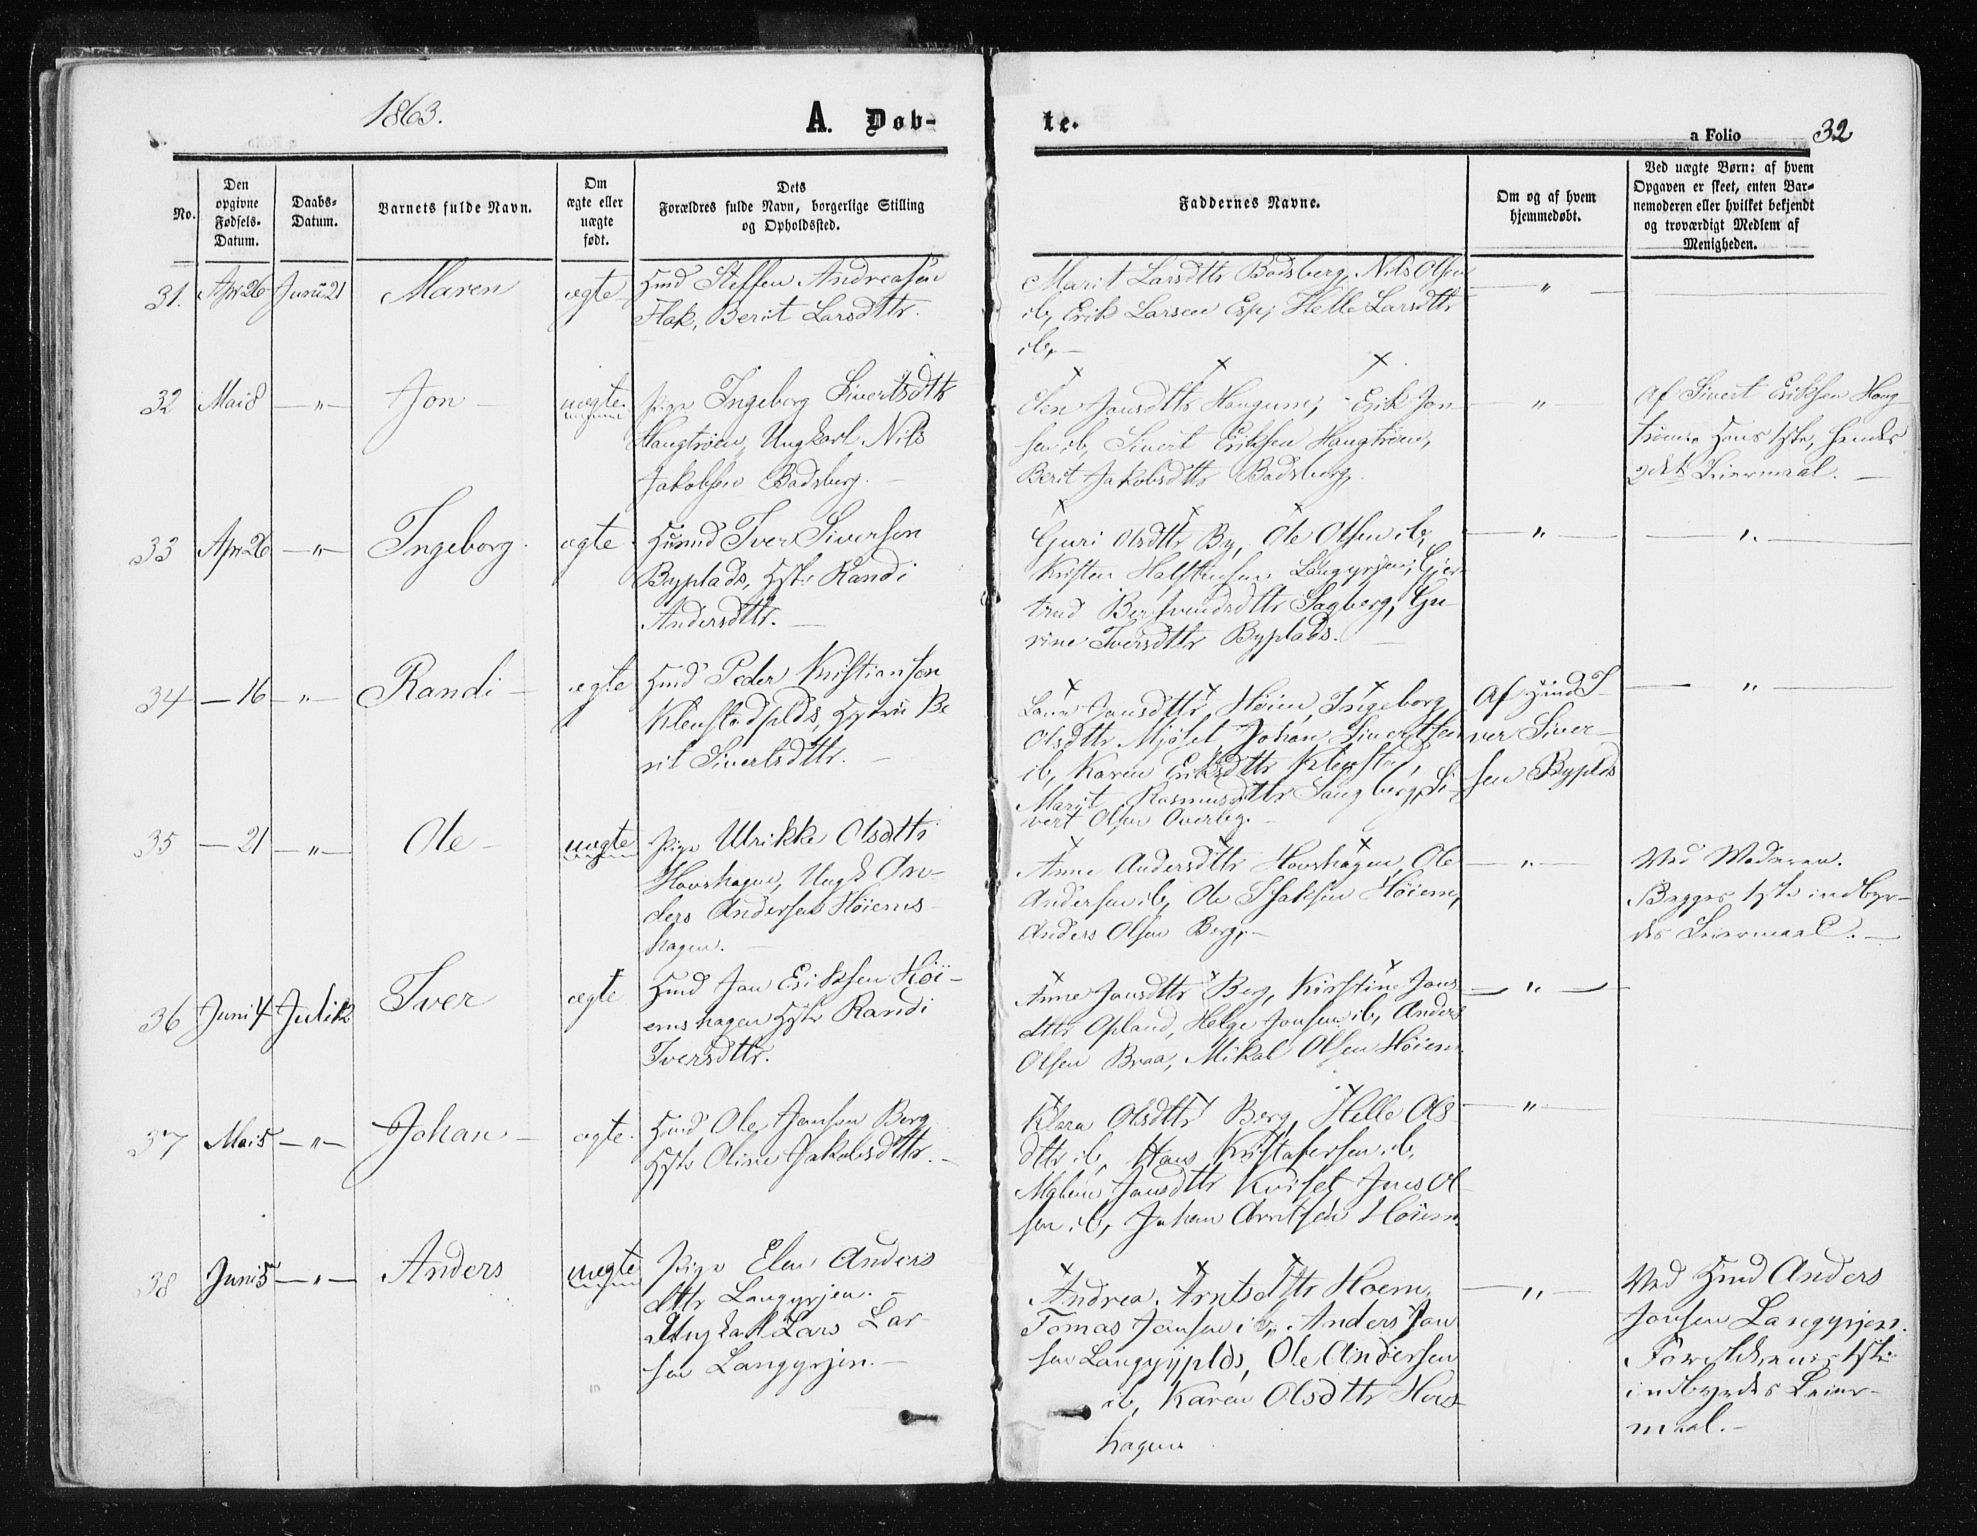 1863.
A. Døb-
te.
a Folio 32
No.
Den
opgivne
Fødsels-
Datum.
Daabs-
Datum.
Barnets fulde Navn.
Om
ægte eller
uægte
født.
Dets
Forældres fulde Navn, borgerlige Stilling
og Opholdssted.
Faddernes Navne.
Om og af hvem
hjemmedøbt.
Ved uægte Børn: af hvem
Opgaven er skeet, enten Bar-
nemoderen eller hvilket bekjendt
og troværdigt Medlem af
Menigheden.
31. Apr 26 Juni 21 Maren ægte
Hmd Steffen Andreasen
Flak, Berit Larsdttr.
Marit Larsdttr Badsberg, Nils Olsen
ib, Erik Larsen Esp, Helle Larsdttr
ib, —
— " —
32 Mai 8 — " — Jon — uægte.
Pige Ingeborg Sivertsdttr
Haugtrøen, Ungkarl Nils
Jakobsen Badsberg. —
Jonsdttr Haugum, Erik Jon
sen ib, Sivert Eriksen Haugtrøen,
Berit Jakobsdttr Badsberg.
— " —
Af Sivert Eriksen Haug
trøen. Hans 1ste, hendes
2det Leiermaal. —
33 Apr 26 — " — Ingeborg. ægte.
Husmd Iver Siversen
Byplads, Hstr Randi
Andersdttr. —
Guri Olsdttr By, Ole Olsen ib,
Kristen Halstensen Langgrjen, Gjer
trud Bersvendsdttr Sagberg, Gu-
rine Iversdttr Byplads. —
— " —
— " —
34 — 16 — " — Randi — ægte
Hmd Peder Kristiansen
Klevstadplds, Hstru Be
rit Sivertsdttr. —
Jonsdttr Høiem, Ingeborg
Olsdttr Mjøset, Johan Sivertsen
ib, Karen Eriksdttr Klevstad,
Marit Rasmusdttr Saugberg, Si-
vert Olsen Overleg. —
Af Hmd I-
ver Siver-
sen Byplds
— " —
35 — 21 — " — Ole — uægte
Pige Ulrikke Olsdttr
Hovshagen, Ungk An-
ders Andersen Høiems-
hagen. —
Anne Andersdttr Hovshagen, Ole
Andersen ib, Ole Isaksen Høiem,
Anders Olsen Berg, —
— " —
Ved Moderen.
Begges 1ste indbyr-
des Leiermaal. —
36 Juni 4 Juli 12 Iver ægte
Hmd Jon Eriksen Høi-
emshagen Hstr Randi
Iversdttr.
Anne Jonsdttr Berg, Kirstine Jons
dttr Opland, Helge Jonsen ib, Anders
Olsen Braa, Mikal Olsen Høiem
— " —
37 Mai 5 — " — Johan — ægte.
Hmd Ole Jonsen Berg
Hstr Oline Jakobsdttr. —
Klara Olsdttr Berg, Helle Ols
dttr ib, Hans Kristofersen ib,
Malene Jonsdttr Kvislet, Jens Ol
sen ib, Johan Arntsen Høiem.
— " —
38 Juni 5 — " — Anders uægte
Pige Elen Anders
dttr Langgrjen. —
Ungkarl Lars Lar-
sen Langgrjen. —
Andrea Arntsdttr Hoem,
Tomas Jensen ib, Anders Jon
sen Langgrjplds, Ole Andersen
ib, Karen Olsdttr Hovs
hagen
— " —
Ved Hmd Anders
Jonsen Langgrjen.
Forældrenes 1ste
indbyrdes Leier-
maal. —